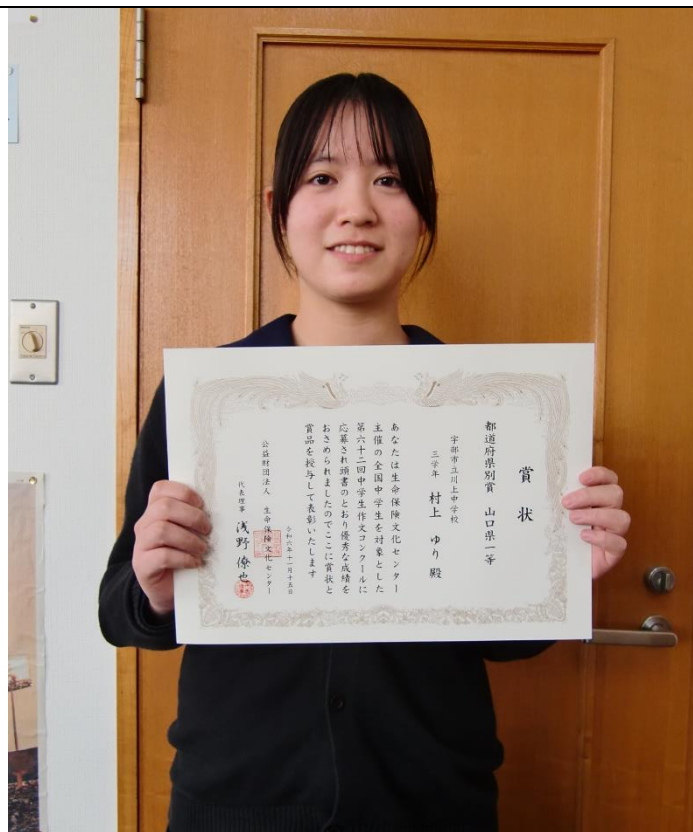 賞状
都道府県別賞 山口県一等
宇部市立川上中学校
三学年 村上 ゆり 殿
あなたは生命保険文化センター
主催の全国中学生を対象とした
第六十二回中学生作文コンクールに
応募され頭書のとおり優秀な成績を
おさめられましたのでここに賞状と
賞品を授与して表彰いたします
令和六年十一月十五日
公益財団法人 生命保険文化センター
代表理事 浅野 僚也